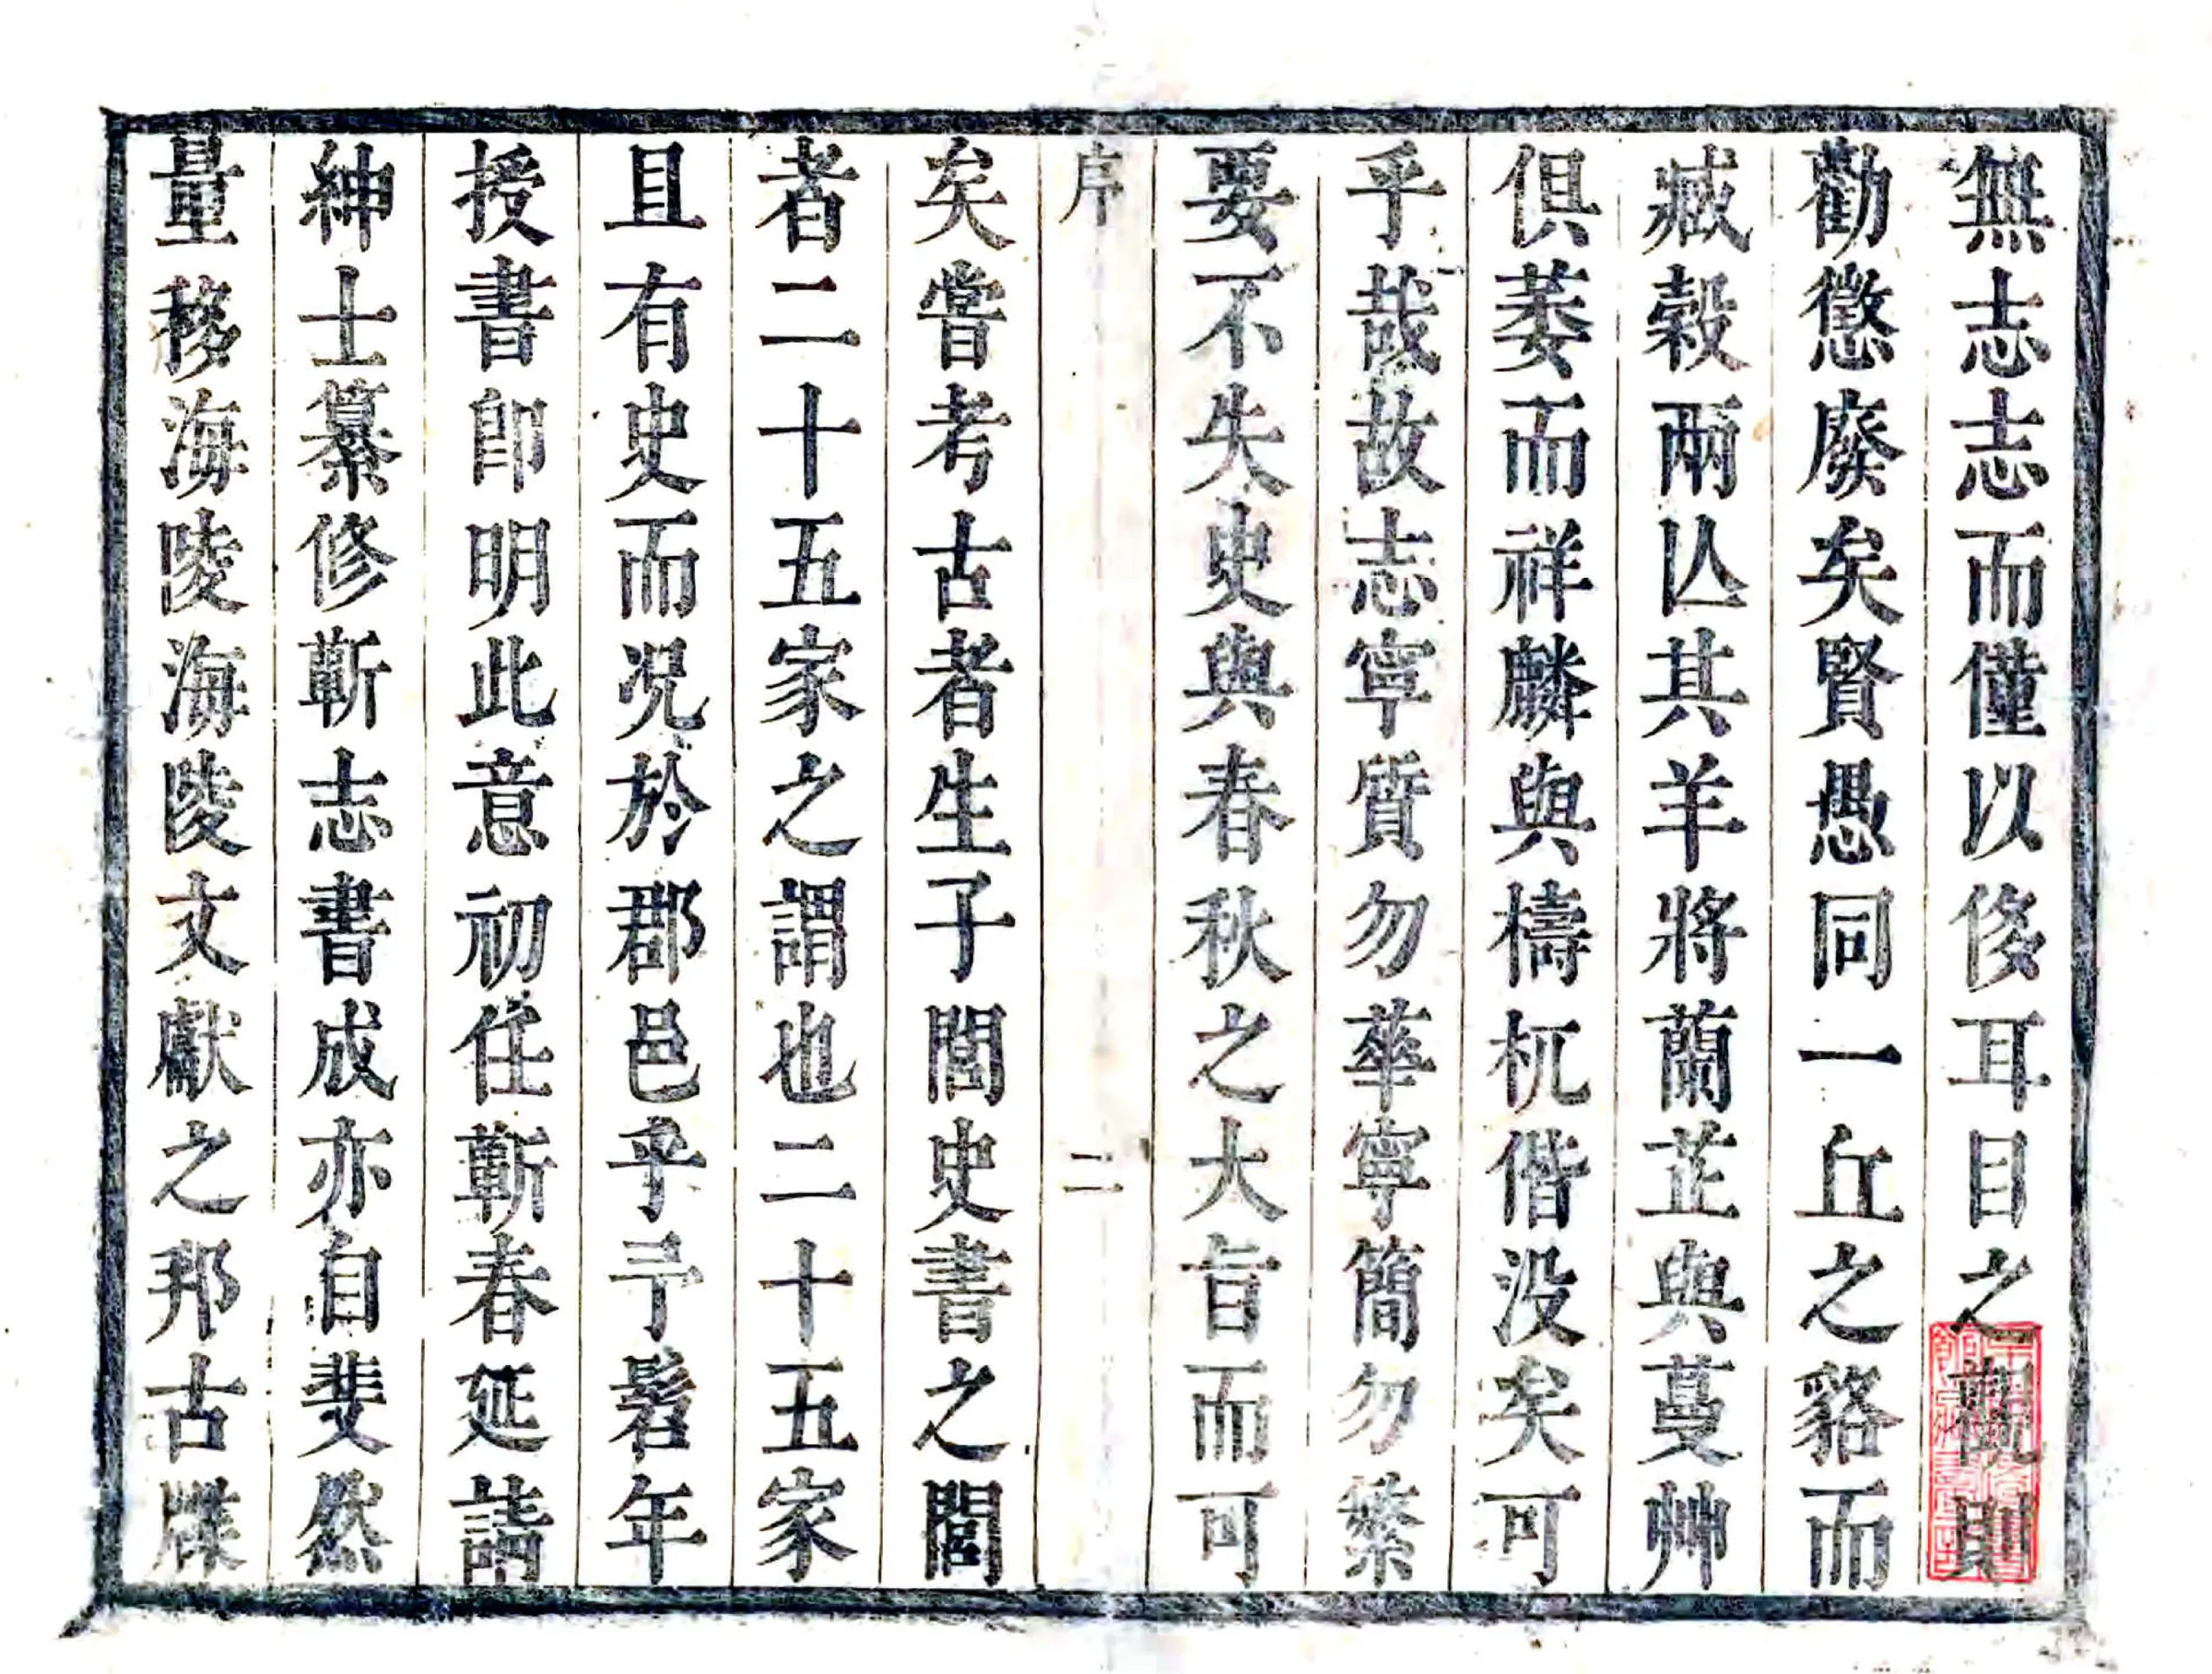 無志志而僅以侈耳目之觀則
勸懲廢矣賢愚同一丘之貉而
臧穀兩亾其羊將蘭芷與蔓艸
俱萎而祥麟與檮杌偕没矣可
乎哉故志寧質勿華寧簡勿繁
要不失史與春秋之大旨而可
序 二
矣嘗考古者生子閭史書之閭
者二十五家之謂也二十五家
且有史而况於郡邑乎予髫年
授書卽明此意初任蘄春延請
紳士纂修蘄志書成亦自斐然
量移海陵海陵文獻之邦古牒